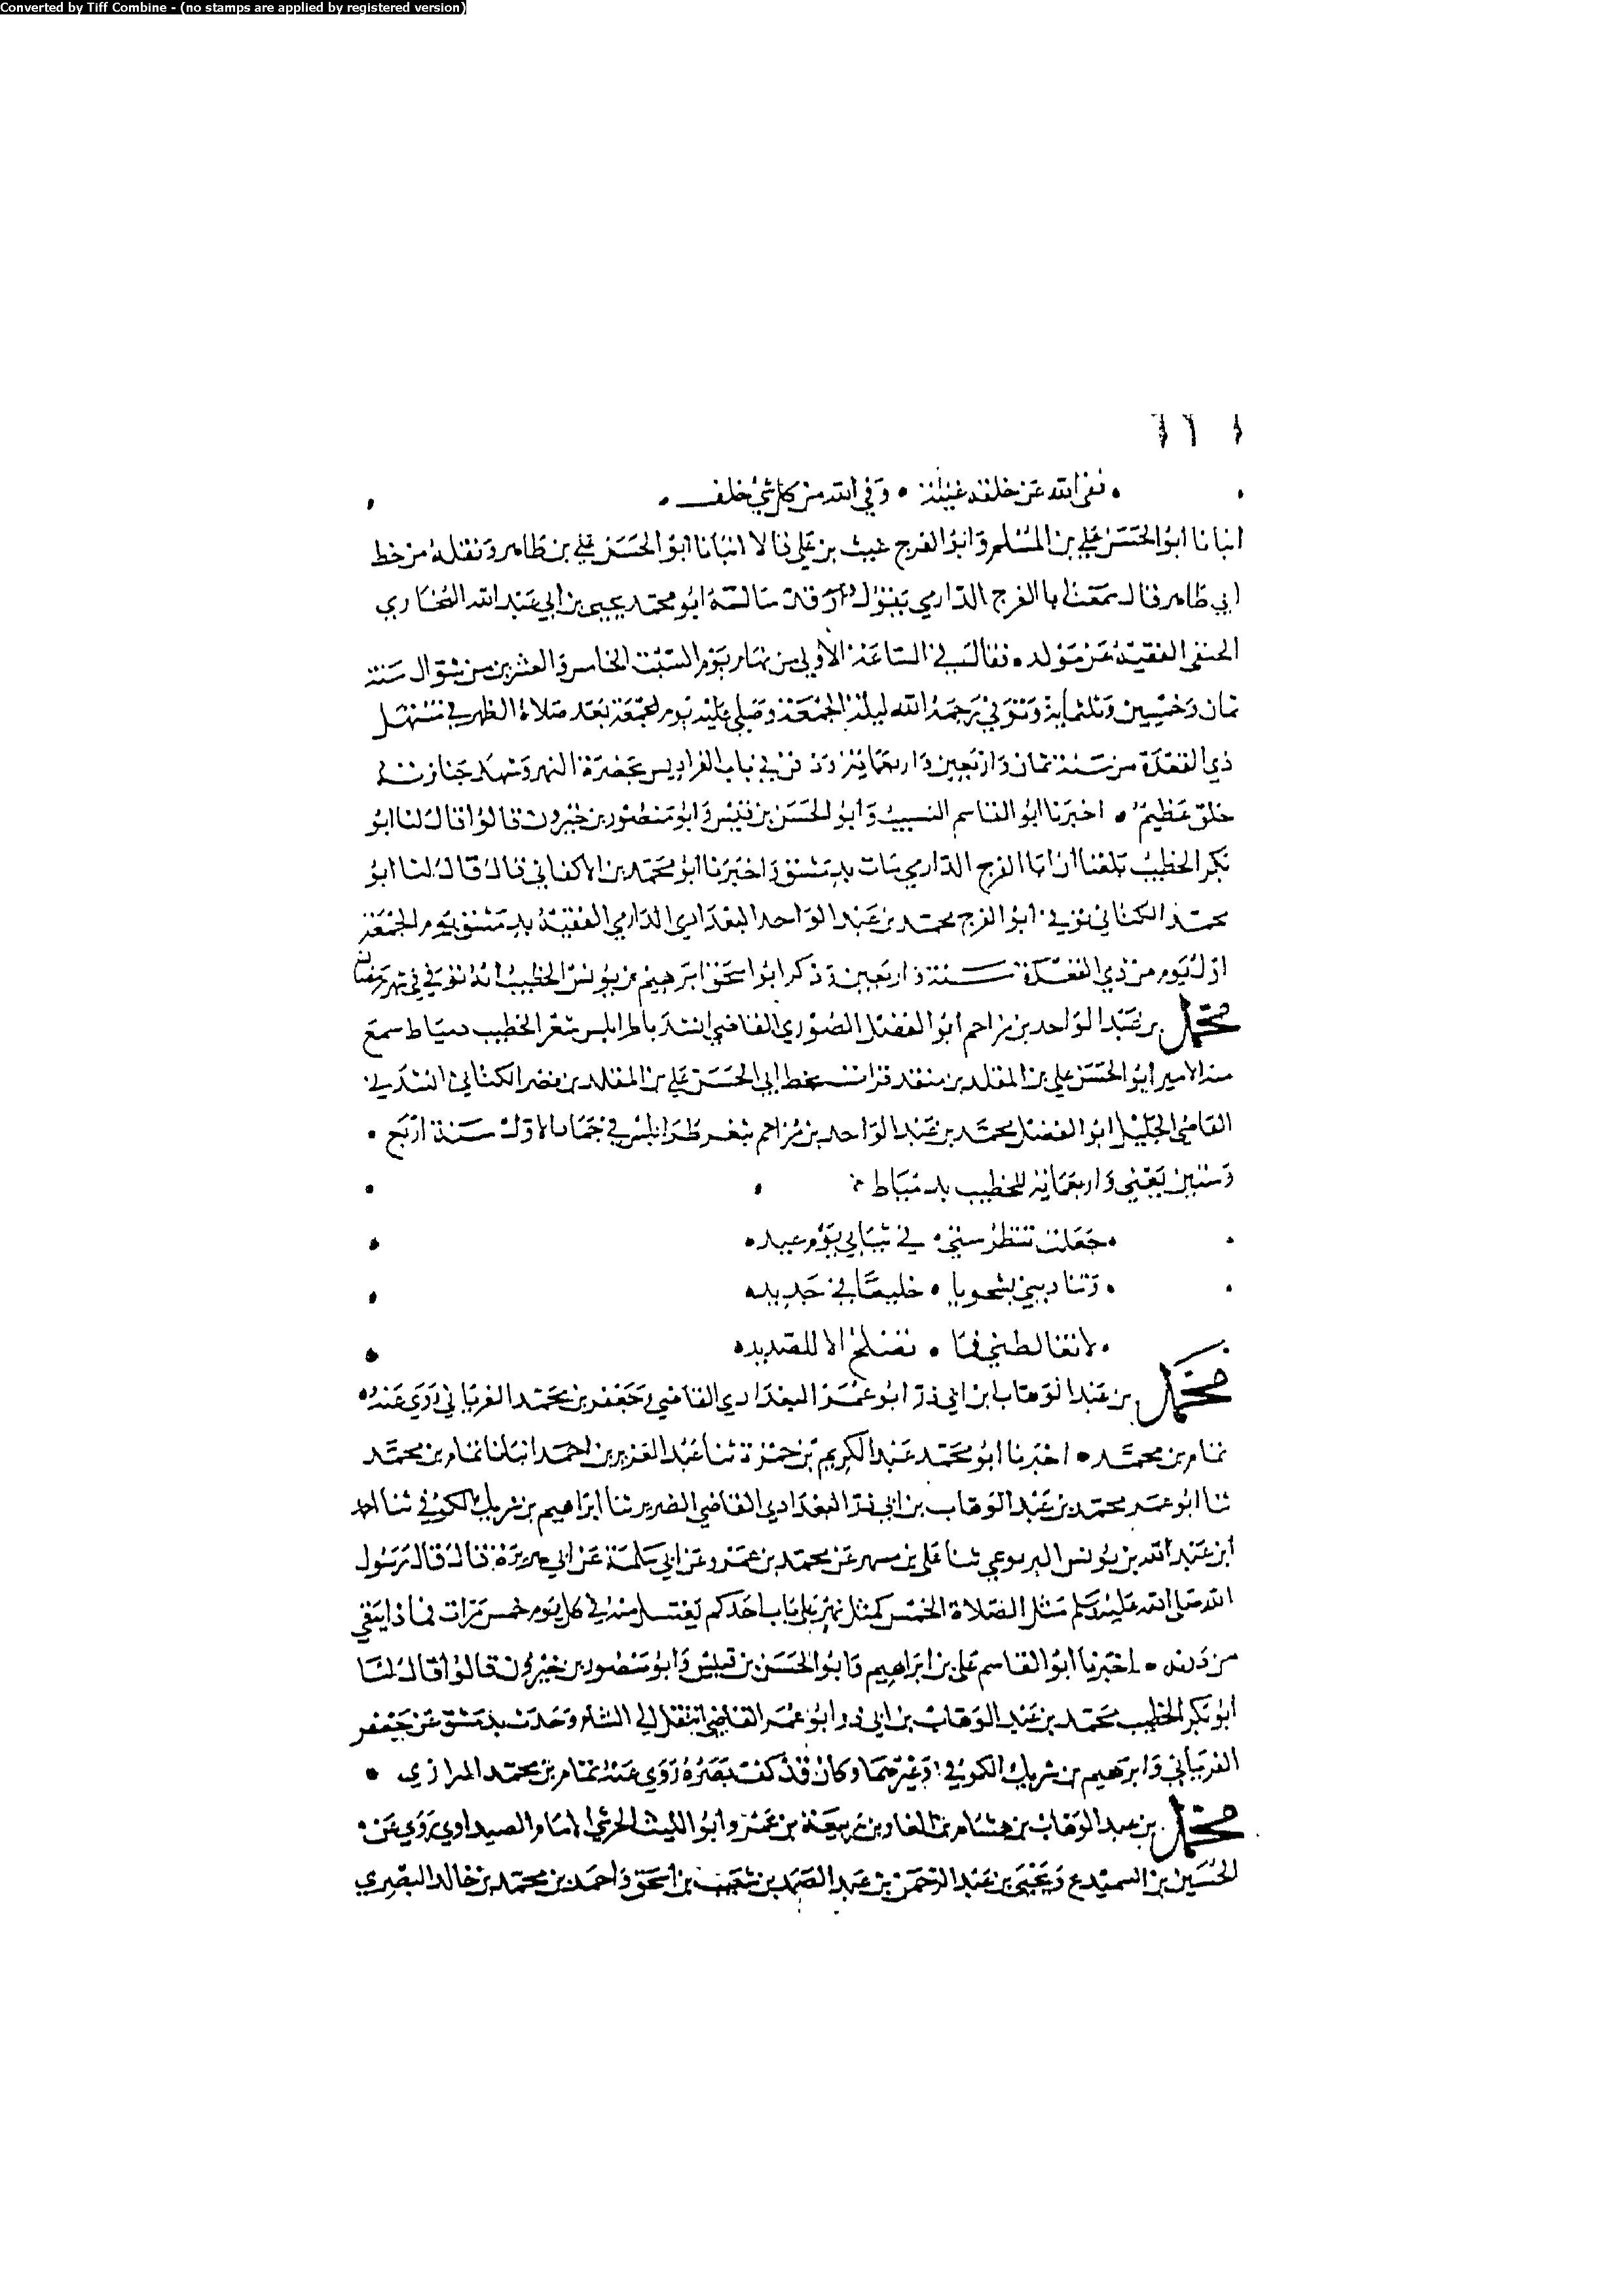 Converted by Tiff Combine - (no stamps are applied by registered version)
ففي الله عن خلقه غنية • وفي الله من كل شيء خلف •
انبانا ابو الحسن علي بن المسلم وابو الفرج غيث بن علي قالا انبانا ابو الحسن علي بن طاهر ونقله من خط
ابي طاهر قال سمعت ابا الفرج الدارمي يقول وقد ساله ابو محمد يحيى بن ابي عبد الله البخاري
الحنفي الفقيه عن مولده • فقال في الساعة الاولى من نهار يوم السبت الخامس والعشرين من شوال سنة
ثمان وخمسين وثلثماية وتوفي رحمه الله ليلة الجمعة وصلي عليه يوم الجمعة بعد صلاة الظهر في مستهل
ذي القعدة من سنة ثمان واربعين واربعماية ودفن في باب الفراديس بحضرة النهر وشهد جنازته
خلق عظيم • اخبرنا ابو القاسم النسيب وابو الحسن بن قبيس وابو منصور بن خيرون قالوا قال لنا ابو
بكر الخطيب بلغنا ان ابا الفرج الدارمي مات بدمشق واخبرنا ابو محمد بن الاكفاني قال قال لنا ابو
محمد الكتاني توفي ابو الفرج محمد بن عبد الواحد البغدادي الدارمي الفقيه بدمشق يوم الجمعة
اول يوم من ذي القعدة سنة واربعين وذكر ابو اسحق ابرهيم بن يونس الخطيب انه توفي في شهر رمضان
محمد بن عبد الواحد بن مزاحم ابو الفضل الصوري القاضي انشد باطرابلس شعر الخطيب دمياط سمع
منه الامير ابو الحسن علي بن المقلد بن منقذ قرات بخط ابي الحسن علي بن المقلد بن نصر الكناني انشدني
القاضي الجليل ابو الفضل محمد بن عبد الواحد بن مزاحم بثغر طرابلس في جمادى الاول سنة اربع •
وستين يعني واربعماية للخطيب بدمياط
• جعلت تنظر ستي • في ثيابي يوم عيد •
• وتناديني بشجو يا • خليعا في جديد •
• لا تغالطني فما • تصلح الا للصديد •
محمد بن عبد الوهاب ابن ابي ذر ابو عمر البغدادي القاضي وجعفر بن محمد الفريابي روى عنه •
تمام بن محمد • اخبرنا ابو محمد عبد الكريم بن حمزة ثنا عبد العزيز بن احمد انبانا تمام بن محمد
ثنا ابو عمر محمد بن عبد الوهاب بن ابي ذر البغدادي القاضي الضرير ثنا ابراهيم بن شريك الكوفي ثنا احمد
ابن عبد الله بن يونس اليربوعي ثنا علي بن مسهر عن محمد بن عمرو عن ابي سلمة عن ابي هريرة قال قال رسول
الله صلى الله عليه وسلم مثل الصلاة الخمس كمثل نهر على باب احدكم يغتسل منه في كل يوم خمس مرات فماذا يبقي
من درنه • اخبرنا ابو القاسم علي بن ابراهيم وابو الحسن بن قبيس وابو منصور بن خيرون قالوا قال لنا
ابو بكر الخطيب محمد بن عبد الوهاب بن ابي ذر ابو عمر القاضي انتقل الى الشام وحدث بدمشق عن جعفر
الفريابي وابرهيم بن شريك الكوفي وغيرهما وكان قد كف بصره روى عنه تمام بن محمد الرازي •
محمد بن عبد الوهاب بن هشام بن الغاز بن ربيعة بن عمرو ابو الليث الجرشي امام الصيداوي روى عن
الحسين بن السميدع ويحيى بن عبد الرحمن بن عبد الصمد بن شعيب بن اسحق واحمد بن محمد بن خالد البصري